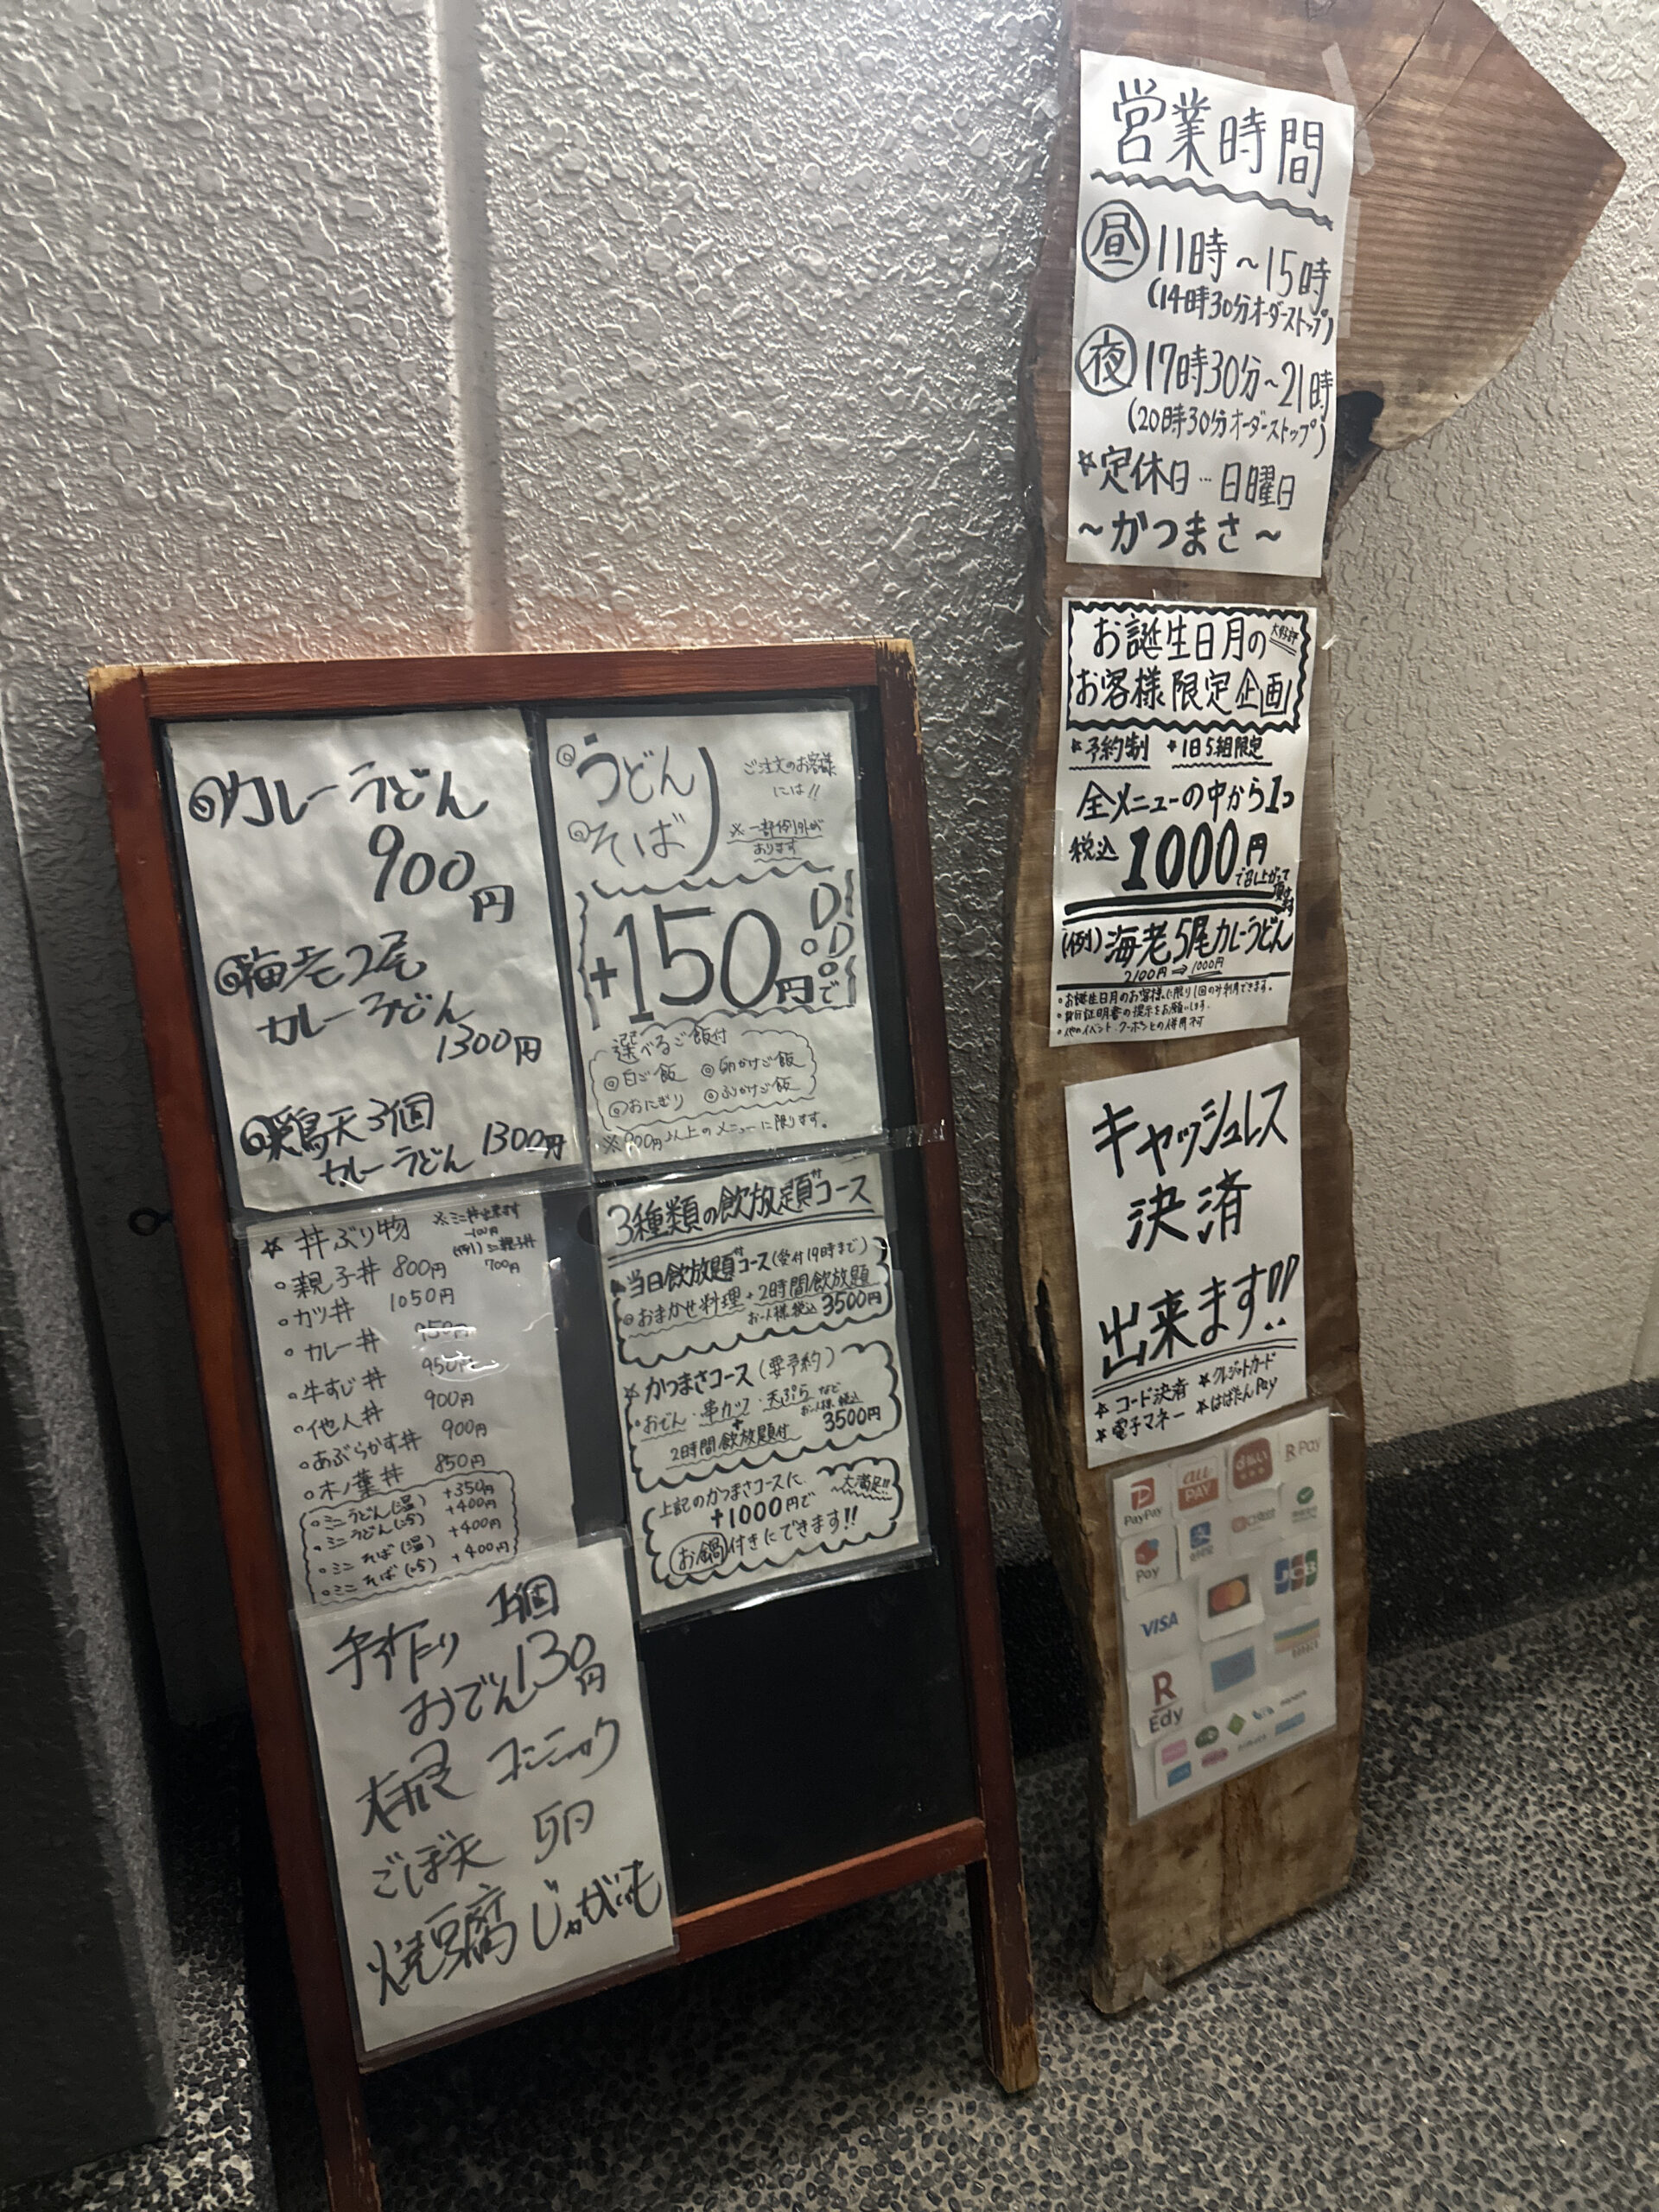 カレーうどん
900円
海老2尾
カレーうどん
1300円
鶏天3個
カレーうどん 1300円
◎うどん
◎そば
ご注文のお客様
には!!
※一部例外が
あります
+150円で
選べるご飯付
◎白ご飯 ◎卵かけご飯
◎おにぎり ◎ふりかけご飯
※900円以上のメニューに限ります。
☆丼ぶり物
※ミニ丼出来ます
-100円
(例)ミニ親子丼
700円
○親子丼 800円
○カツ丼 1050円
○カレー丼 950円
○牛すじ丼 950円
○他人丼 900円
○あぶらかす丼 900円
○木ノ葉丼 850円
○ミニうどん(温) +350円
○ミニうどん(冷) +400円
○ミニそば(温) +400円
○ミニそば(冷) +400円
3種類の飲放題付コース
当日飲放題付コース(受付19時まで)
◎おまかせ料理+2時間飲放題
お一人様税込3500円
☆かつまさコース(要予約)
・おでん・串カツ・天ぷらなど
+
お一人様税込
2時間飲放題付 3500円
上記のかつまさコースに
大満足!!
+1000円で
お鍋付きにできます!!
手作り 1個
おでん130円
大根 コンニャク
ごぼ天 卵
焼豆腐 じゃがいも
営業時間
昼11時~15時
(14時30分オーダーストップ)
夜17時30分~21時
(20時30分オーダーストップ)
☆定休日…日曜日
~かつまさ~
お誕生日月の
大好評
お客様限定企画!
*予約制 *1日5組限定
全メニューの中から1つ
税込1000円
で召し上がって
頂けます
(例)海老5尾カレーうどん
2100円⇒1000円
○お誕生日月のお客様に限り1回のみ利用できます。
○身分証明書の提示をお願いします。
○他のイベント・クーポンとの併用不可
キャッシュレス
決済
出来ます!!
☆コード決済 ☆クレジットカード
☆電子マネー ☆はばたんPay
PayPay
au PAY
d払い
R Pay
Pay
VISA
JCB
R Edy